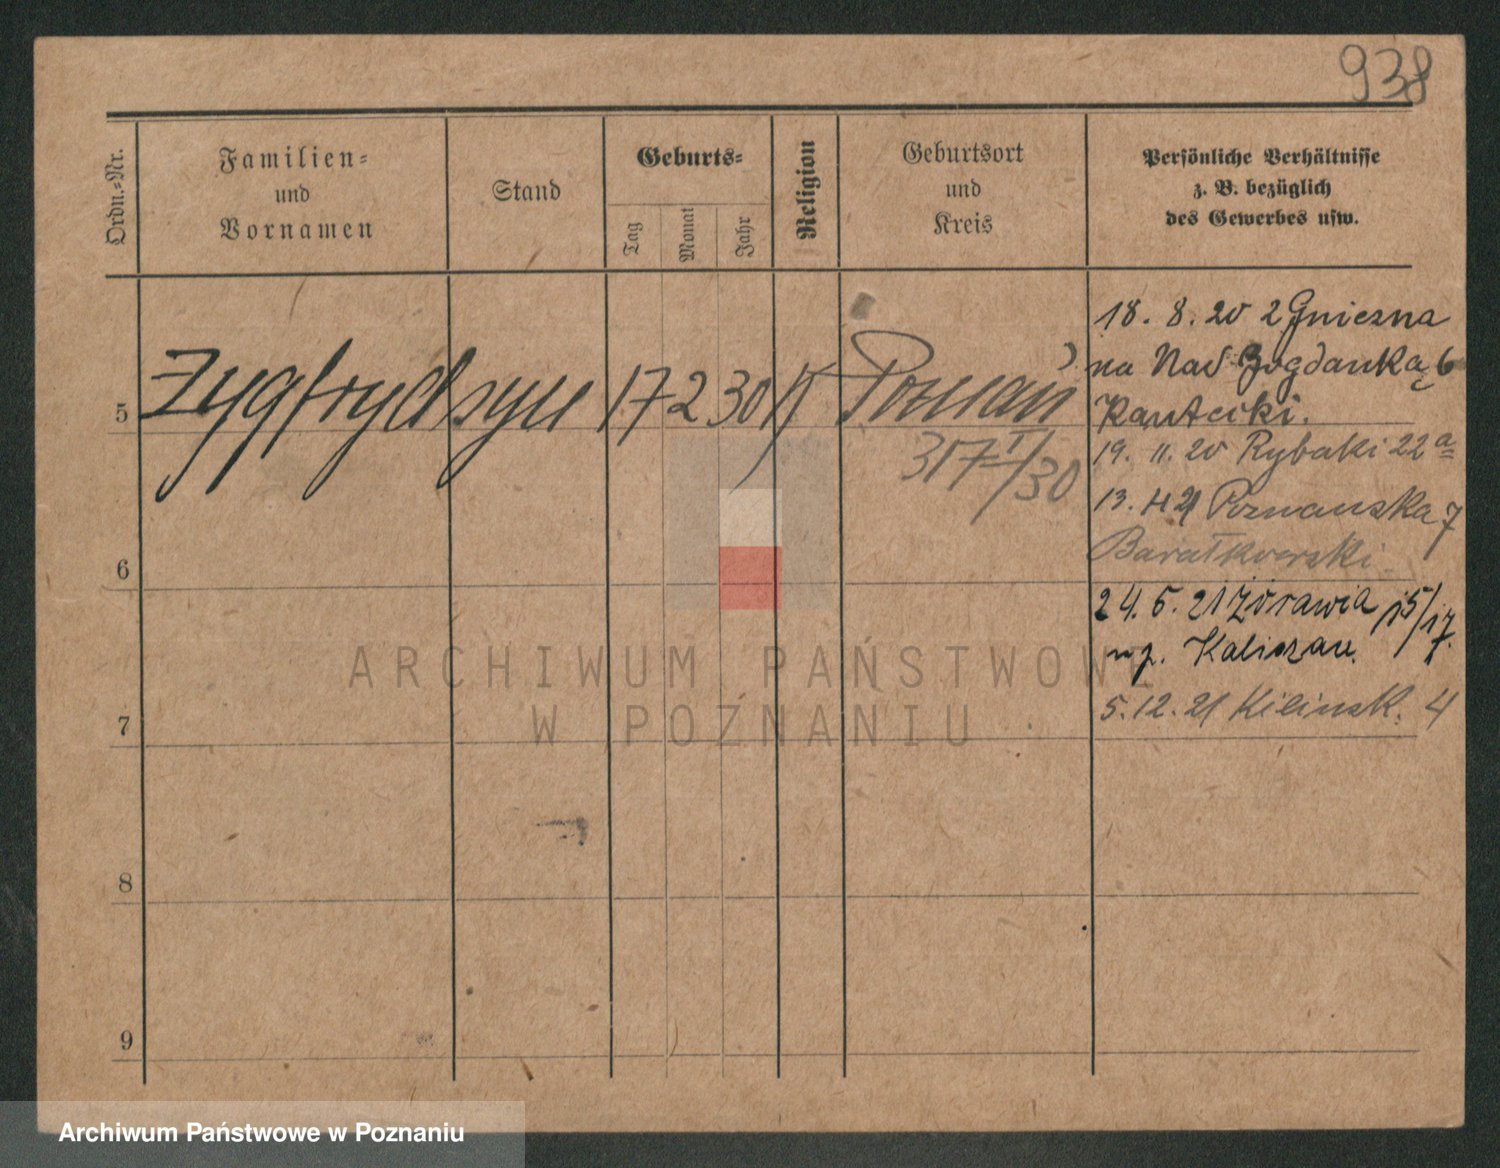 938
Ordn.-Nr.
Familien-
und
Vornamen
Stand
Geburts-
Tag
Monat
Jahr
Religion
Geburtsort
und
Kreis
Persönliche Verhältnisse
z. B. bezüglich
des Gewerbes usw.
18. 8. 20 z Gniezna
na Nad Bogdanką 6
5 Zygfryd syn 17 2 30 K Poznań
317 I/30
19. 11. 20 Rybaki 22a
13. 4 21 Poznanska 7
6
24. 5. 21 Żórawia 15/17.
5. 12. 21 Kilinsk. 4
7
8
9
ARCHIWUM PAŃSTWOWE
W POZNANIU
Archiwum Państwowe w Poznaniu